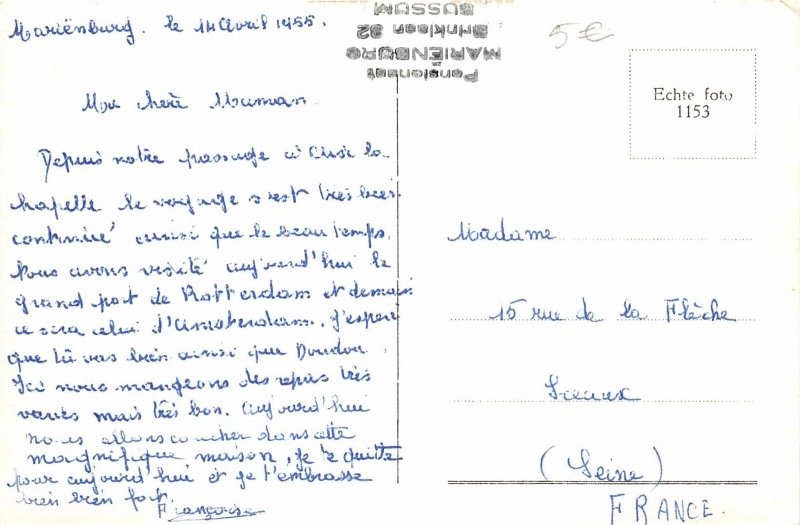 Mariënburg. le 14 avril 1955.
Pensionaat
MARIËNBURG
Brinklaan 82
BUSSUM
5€
Echte foto
1153
Ma chère Maman
Depuis notre passage à la
chapelle le voyage s'est très bien
continué ainsi que le beau temps.
Nous avons visité aujourd'hui le
grand port de Rotterdam et demain
ce sera celui d'Amsterdam. J'espère
que tu vas bien ainsi que Doudou.
Ici nous mangeons des repas très
variés mais très bon. Aujourd'hui
nous allons coucher dans cette
magnifique maison, je te quitte
pour aujourd'hui et je t'embrasse
bien bien fort.
Françoise
Madame
15 rue de la Flèche
Sceaux
(Seine)
FRANCE.